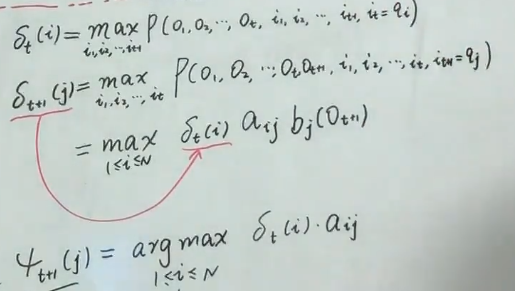 δ_t(i) = max_{i₁,i₂,…,i_{t-1}} P(O₁, O₂, …, O_t, i₁, i₂, …, i_{t-1}, i_t = q_i)
δ_{t+1}(j) = max_{i₁,i₂,…,i_t} P(O₁, O₂, …, O_t, O_{t+1}, i₁, i₂, …, i_t, i_{t+1} = q_j)
= max_{1≤i≤N} δ_t(i) a_{ij} b_j(O_{t+1})
ψ_{t+1}(j) = arg max_{1≤i≤N} δ_t(i) · a_{ij}